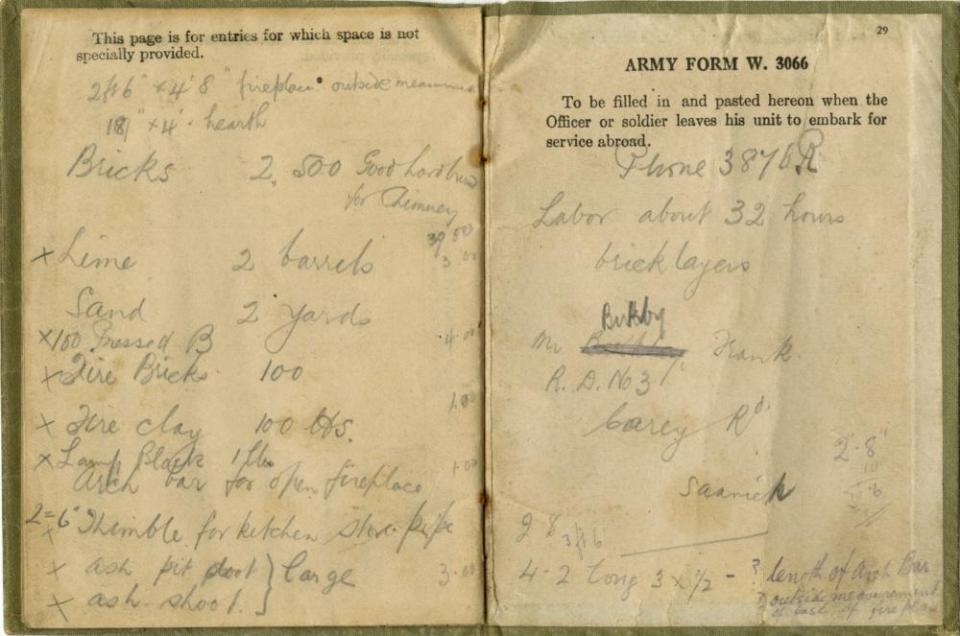 This page is for entries for which space is not
specially provided.
2ft 6" x 4' 8" fireplace outside
18" x 4' hearth
Bricks 2,500 Good hard
for Chimney
x Lime 2 barrels 3 00
Sand 2 yards
x 100 Pressed B 4 00
x Fire Bricks 100
1.00
x Fire clay 100 lbs.
x Lamp Black 1 lb 1 00
Arch bar for open fireplace
2=6" Thimble for kitchen stove pipe
x ash pit door } large 3.00
x ash shoot.
29
ARMY FORM W. 3066
To be filled in and pasted hereon when the
Officer or soldier leaves his unit to embark for
service abroad.
Phone 3876 R
Labor about 32 hours
bricklayers
Birkby
Mr Frank.
R. D. No 3
Carey Rd
2-8"
Saanich
2 8
3ft 6
4-2 long 3 x 1/2 - ? length of Arch Bar
outside measurement
of fire place